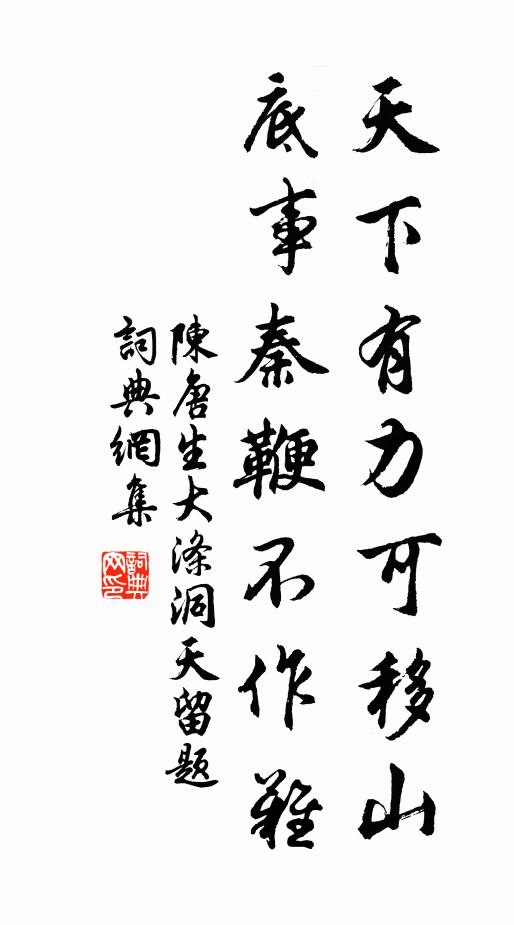 天下有力可移山
底事秦鞭不作難
陳唐生大滌洞天留題
詞典網集
詞典網印